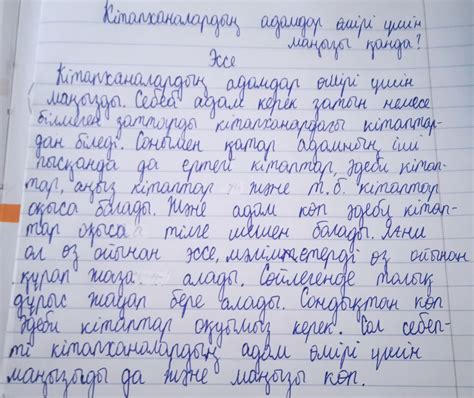 Кітапханалардың адамдар өмірі үшін
маңызы қанда?
Эссе
Кітапханалардың адамдар өмірі үшін
маңызды. Себебі адам керек затын немесе
білмеген заттарды кітапханардағы кітаптар-
дан біледі. Сонымен қатар адамның іші
пысқанда да ертегі кітаптар, әдеби кітап-
тар, аңыз кітаптар және т.б. кітаптар
оқыса болады. Және адам көп әдеби кітап-
тар оқыса тілге шешен болады. Яғни
ол өз ойынан эссе, мәліметтерді өз ойынан
құрап жаза алады. Сөйлегенде толық
дұрыс жауап бере алады. Сондықтан көп
әдеби кітаптар оқуымыз керек. Сол себеп-
ті кітапханалардың адам өмірі үшін
маңызыды да және маңызы көп.